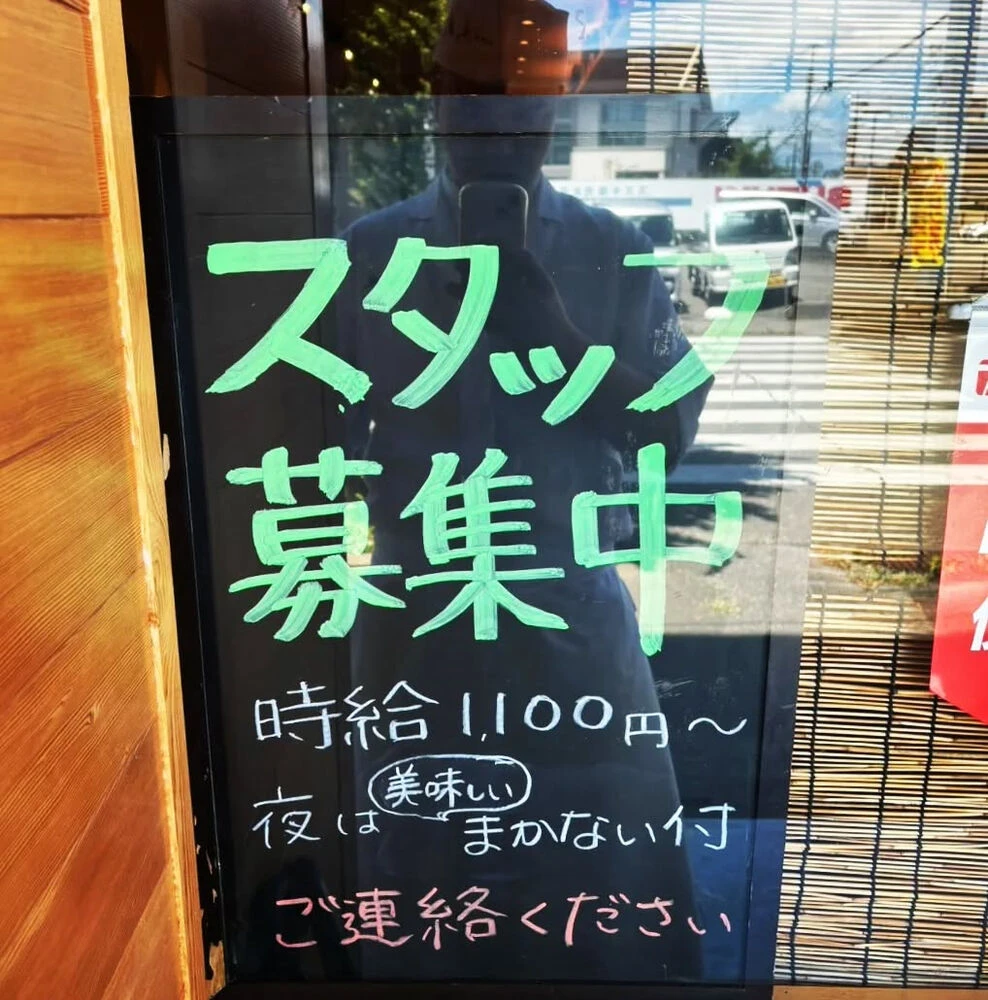 スタッフ
募集中
時給1,100円～
夜は美味しいまかない付
ご連絡ください